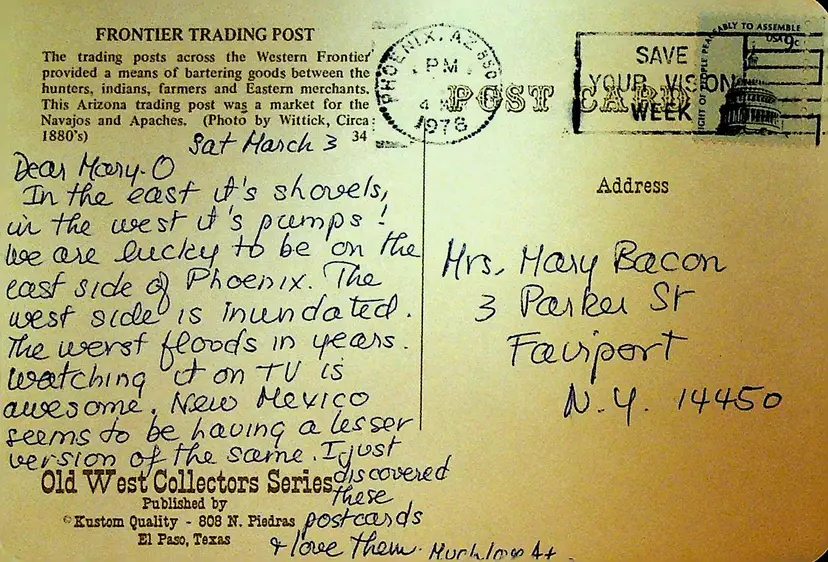 FRONTIER TRADING POST
The trading posts across the Western Frontier
provided a means of bartering goods between the
hunters, indians, farmers and Eastern merchants.
This Arizona trading post was a market for the
Navajos and Apaches. (Photo by Wittick, Circa
1880's) 34
Sat March 3
Dear Mary-O
In the east it's shovels,
in the west it's pumps!
We are lucky to be on the
east side of Phoenix. The
west side is inundated.
The worst floods in years.
Watching it on TV is
awesome. New Mexico
seems to be having a lesser
version of the same. I just
discovered
these
postcards
& love them. Much love
Old West Collectors Series
Published by
© Kustom Quality - 808 N. Piedras
El Paso, Texas
PHOENIX, AZ 850
PM
1978
SAVE
YOUR VISION
WEEK
POST CARD
RIGHT OF PEOPLE PEACEABLY TO ASSEMBLE
USA 9c
Address
Mrs. Mary Bacon
3 Parker St
Fairport
N.Y. 14450